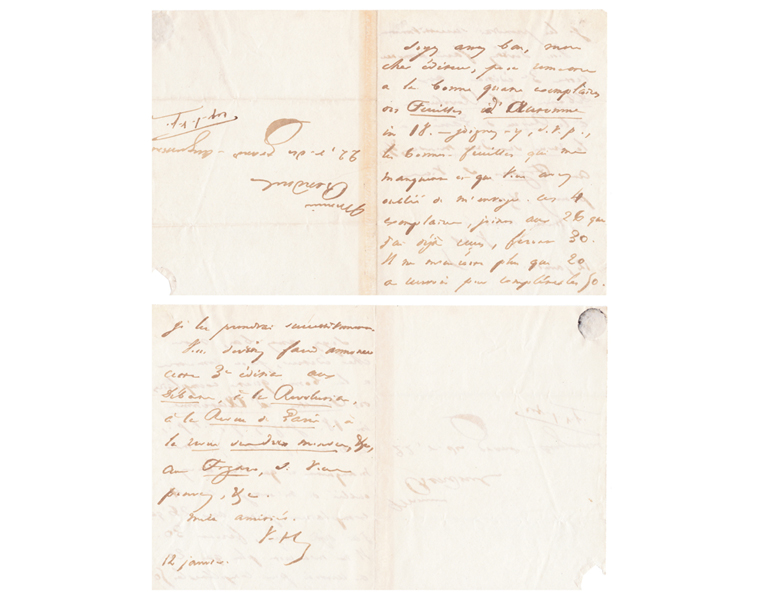 Soyez assez bon, mon
cher éditeur, pour remettre
à la bonne quatre exemplaires
des Feuilles d'Automne
in 18. - joignez-y, s.v.p.,
les bonnes-feuilles qui me
manquent et que vous avez
oublié de m'envoyer. Ces 4
exemplaires, joints aux 26 que
j'ai déjà eus, feront 30.
Il ne m'en reste plus que 20
à recevoir pour compléter les 50.
Monsieur
Renduel
22, r. des grands-augustins
Je les prendrai successivement
Vous devriez faire annoncer
cette 3e édition aux
Débats, à la Révolution,
à la Revue de Paris, à
la revue des deux mondes, &c,
au Figaro, si vous
pouvez, &c.
mille amitiés.
V. H
12 janvier.